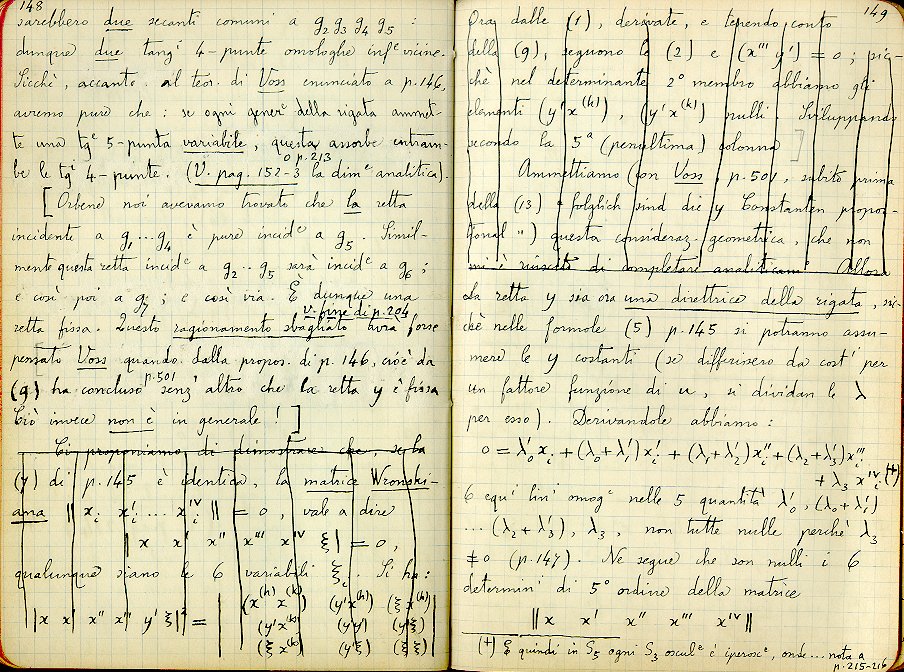 148
sarebbero due secanti comuni a g₂ g₃ g₄ g₅ :
dunque due tangⁱ 4-punte omologhe infᵉ vicine.
Sicchè, accanto al teor. di Voss enunciato a p. 146,
avremo pure che : se ogni generᵉ della rigata ammet-
te una tgᵉ 5-punta variabile, questa assorbe entram-
be le tgⁱ 4-punte. (V. pag. 152-3 o p. 213 la dimᵉ analitica).
[Orbene noi avevamo trovato che la retta
incidente a g₁ ... g₄ è pure incidᵉ a g₅. Simil-
mente questa retta incidᵉ a g₂ .. g₅ sarà incidᵉ a g₆ ;
e così poi a g₇ ; e così via. È dunque una
retta fissa. Questo ragionamento sbagliato v. fine di p. 204 avrà forse
pensato Voss quando dalla propos. di p. 146, cioè da
(9) ha concluso p. 501 senz'altro che la retta y è fissa
Ciò invece non è in generale ! ]
Ci proponiamo di dimostrare che, se la
(7) di p. 145 è identica, la matrice Wronski-
ana || xᵢ xᵢ' ... xᵢᴵⱽ || = 0 , vale a dire
| x x' x'' x''' xᴵⱽ ξ | = 0 ,
qualunque siano le 6 variabili ξᵢ. Si ha :
| x x' x'' x''' y' ξ |² = | (x⁽ʰ⁾ x⁽ᵏ⁾) (y' x⁽ʰ⁾) (ξ x⁽ʰ⁾) |
(y' x⁽ᵏ⁾) (y'y') (y'ξ)
(ξ x⁽ᵏ⁾) (y'ξ) (ξξ)
149
Ora dalle (1), derivate, e tenendo conto
della (9), seguono le (2) e (x''' y') = 0 ; sic-
chè nel determinante 2° membro abbiamo gli
elementi (y' x⁽ʰ⁾), (y' x⁽ᵏ⁾) nulli. Sviluppando
secondo la 5ª (penultima) colonna ]
Ammettiamo (con Voss, p. 501, subito prima
della (13) "folglich sind die y Constanten propor-
tional") questa consideraz. geometrica, che non
mi è riuscito di completare analiticamᵉ. Allora
La retta y sia ora una direttrice della rigata, sic-
chè nelle formole (5) p. 145 si potranno assu-
mere le y costanti (se differissero da costⁱ per
un fattore funzione di u, si dividan le λ
per esso). Derivandole abbiamo :
0 = λ₀' xᵢ + (λ₀+λ₁') xᵢ' + (λ₁+λ₂') xᵢ'' + (λ₂+λ₃') xᵢ'''
+ λ₃ xᵢᴵⱽ (+)
6 equⁱ linⁱ omogᵉ nelle 5 quantità λ₀', (λ₀+λ₁')
... (λ₂+λ₃'), λ₃ , non tutte nulle perchè λ₃
≠ 0 (p. 147). Ne segue che son nulli i 6
determini di 5° ordine della matrice
|| x x' x'' x''' xᴵⱽ ||
(+) E quindi in S₅ ogni S₃ osculᵉ è iperoscᵉ, onde ... nota a
p. 215-216